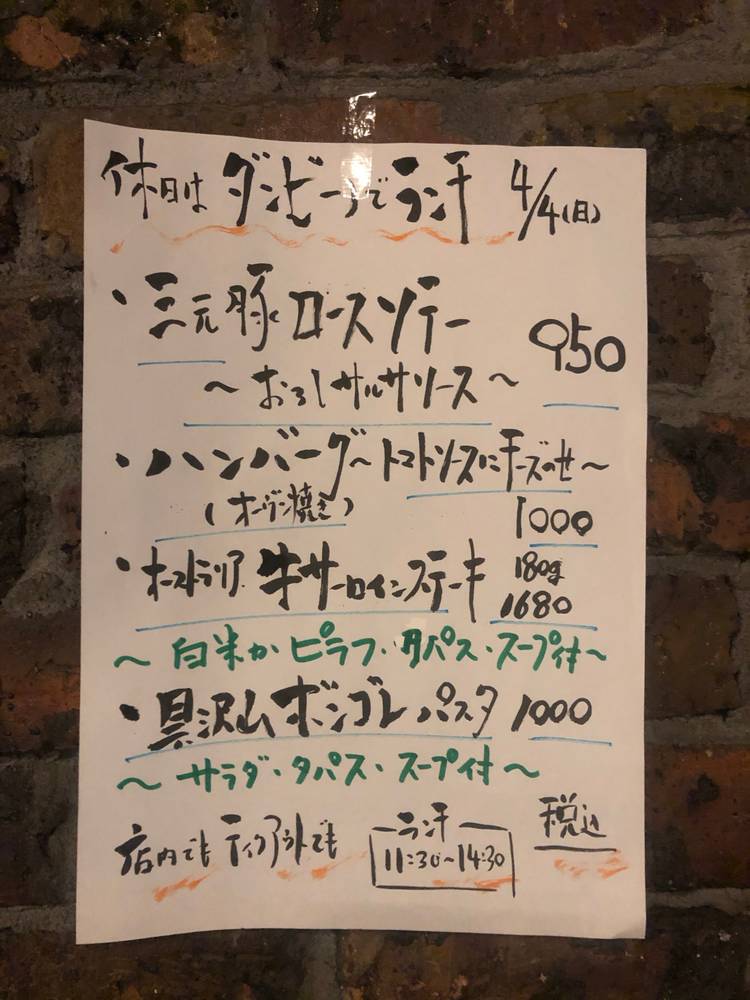 休日は ダンビーノでランチ 4/4(日)
・三元豚ロースソテー 950
〜おろしサルサソース〜
・ハンバーグ〜トマトソースにチーズのせ〜
(オーヴン焼き) 1000
・オーストラリア 牛サーロインステーキ 180g 1680
〜白米かピラフ・タパス・スープ付〜
・具沢山ボンゴレパスタ 1000
〜サラダ・タパス・スープ付〜
店内でもテイクアウトでも
ランチ
11:30〜14:30
税込